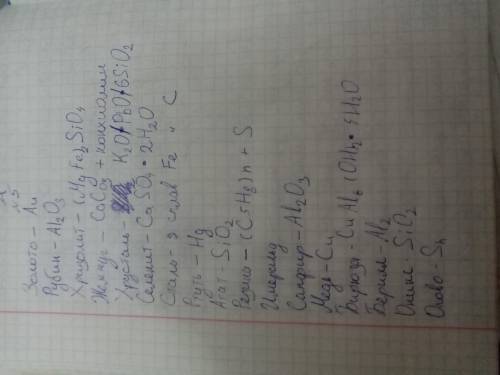 Золото - Au
Рубин - Al2O3
Хризолит - (Mg Fe)2 SiO4
Жемчуг - CaCO3 + конхиолин
Хрусталь - K2O • PbO • 6SiO2
Селенит - CaSO4 • 2H2O
Сталь - э сплав Fe и C
Ртуть - Hg
Агат - SiO2
Резина - (C5H8)n + S
Изумруд
Сапфир - Al2O3
Медь - Cu
Бирюза - CuAl6 (OH)2 • 5H2O
Берилл - Al2
Оникс - SiO2
Олово - Sn